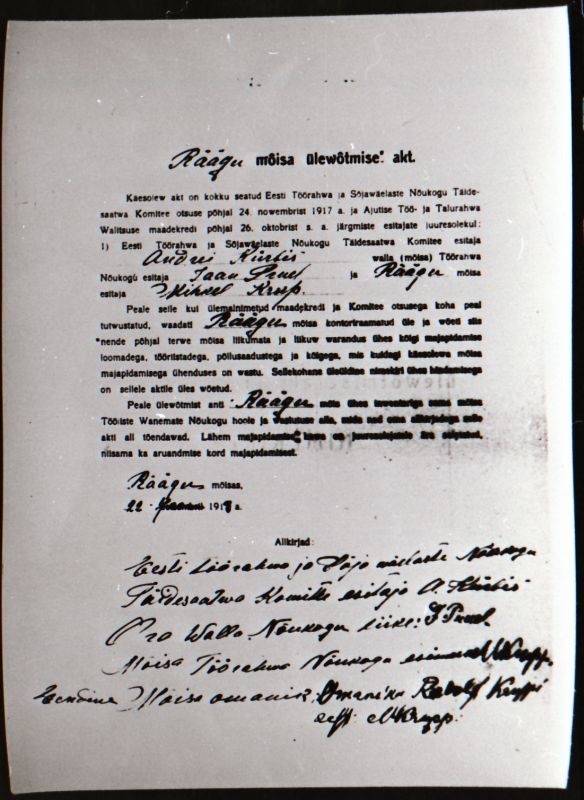 Räägu mõisa ülewõtmise akt.
Käesolew akt on kokku seatud Eesti Töörahwa ja Sõjawäelaste Nõukogu Täide-
saatwa Komitee otsuse põhjal 24. nowembrist 1917 a. ja Ajutise Töö- ja Talurahwa
Walitsuse maadekredi põhjal 26. oktobrist s. a. järgmiste esitajate juuresolekul:
1) Eesti Töörahwa ja Sõjawäelaste Nõukogu Täidesaatwa Komitee esitaja
Andrei Kürbis walla (mõisa) Töörahwa
Nõukogu esitaja Jaan Pruel ja Räägu mõisa
esitaja Mihkel Krup.
Peale selle kui ülemainimetud maadekredi ja Komitee otsusega koha peal
tutwustatud, waadati Räägu mõisa kontoriraamatud üle ja wõeti siis
nende põhjal terwe mõisa liikumata ja liikuw warandus ühes kõigi majapidamise
loomadega, tööriistadega, põllusaadustega ja kõigega, mis kuidagi käesolewa mõisa
majapidamisega ühenduses on wastu. Sellekohane üleüldine nimekiri ühes hindamisega
on sellele aktile üles wõetud.
Peale ülewõtmist anti Räägu mõis ühes inwentariga sama mõisa
Tööliste Wanemate Nõukogu hoole ja wastutuse alla, mida nad oma allkirjadega selle
akti all tõendawad. Lähem majapidamise kawa on juuresolejatele ära seletatud,
niisama ka aruandmise kord majapidamisest.
Räägu mõisas,
22 1918 a.
Allkirjad:
Eesti töörahwa ja Sõja wäelaste Nõukogu
Täidesaatwa Komitee esitaja A. Kürbis
Walla Nõukogu liige: J Pruel
Mõisa Töörahwa Nõukogu esimees M Krupp.
Eendine Mõisa omanik Omaniku Rudolf Kruppi
eest M Krupp.